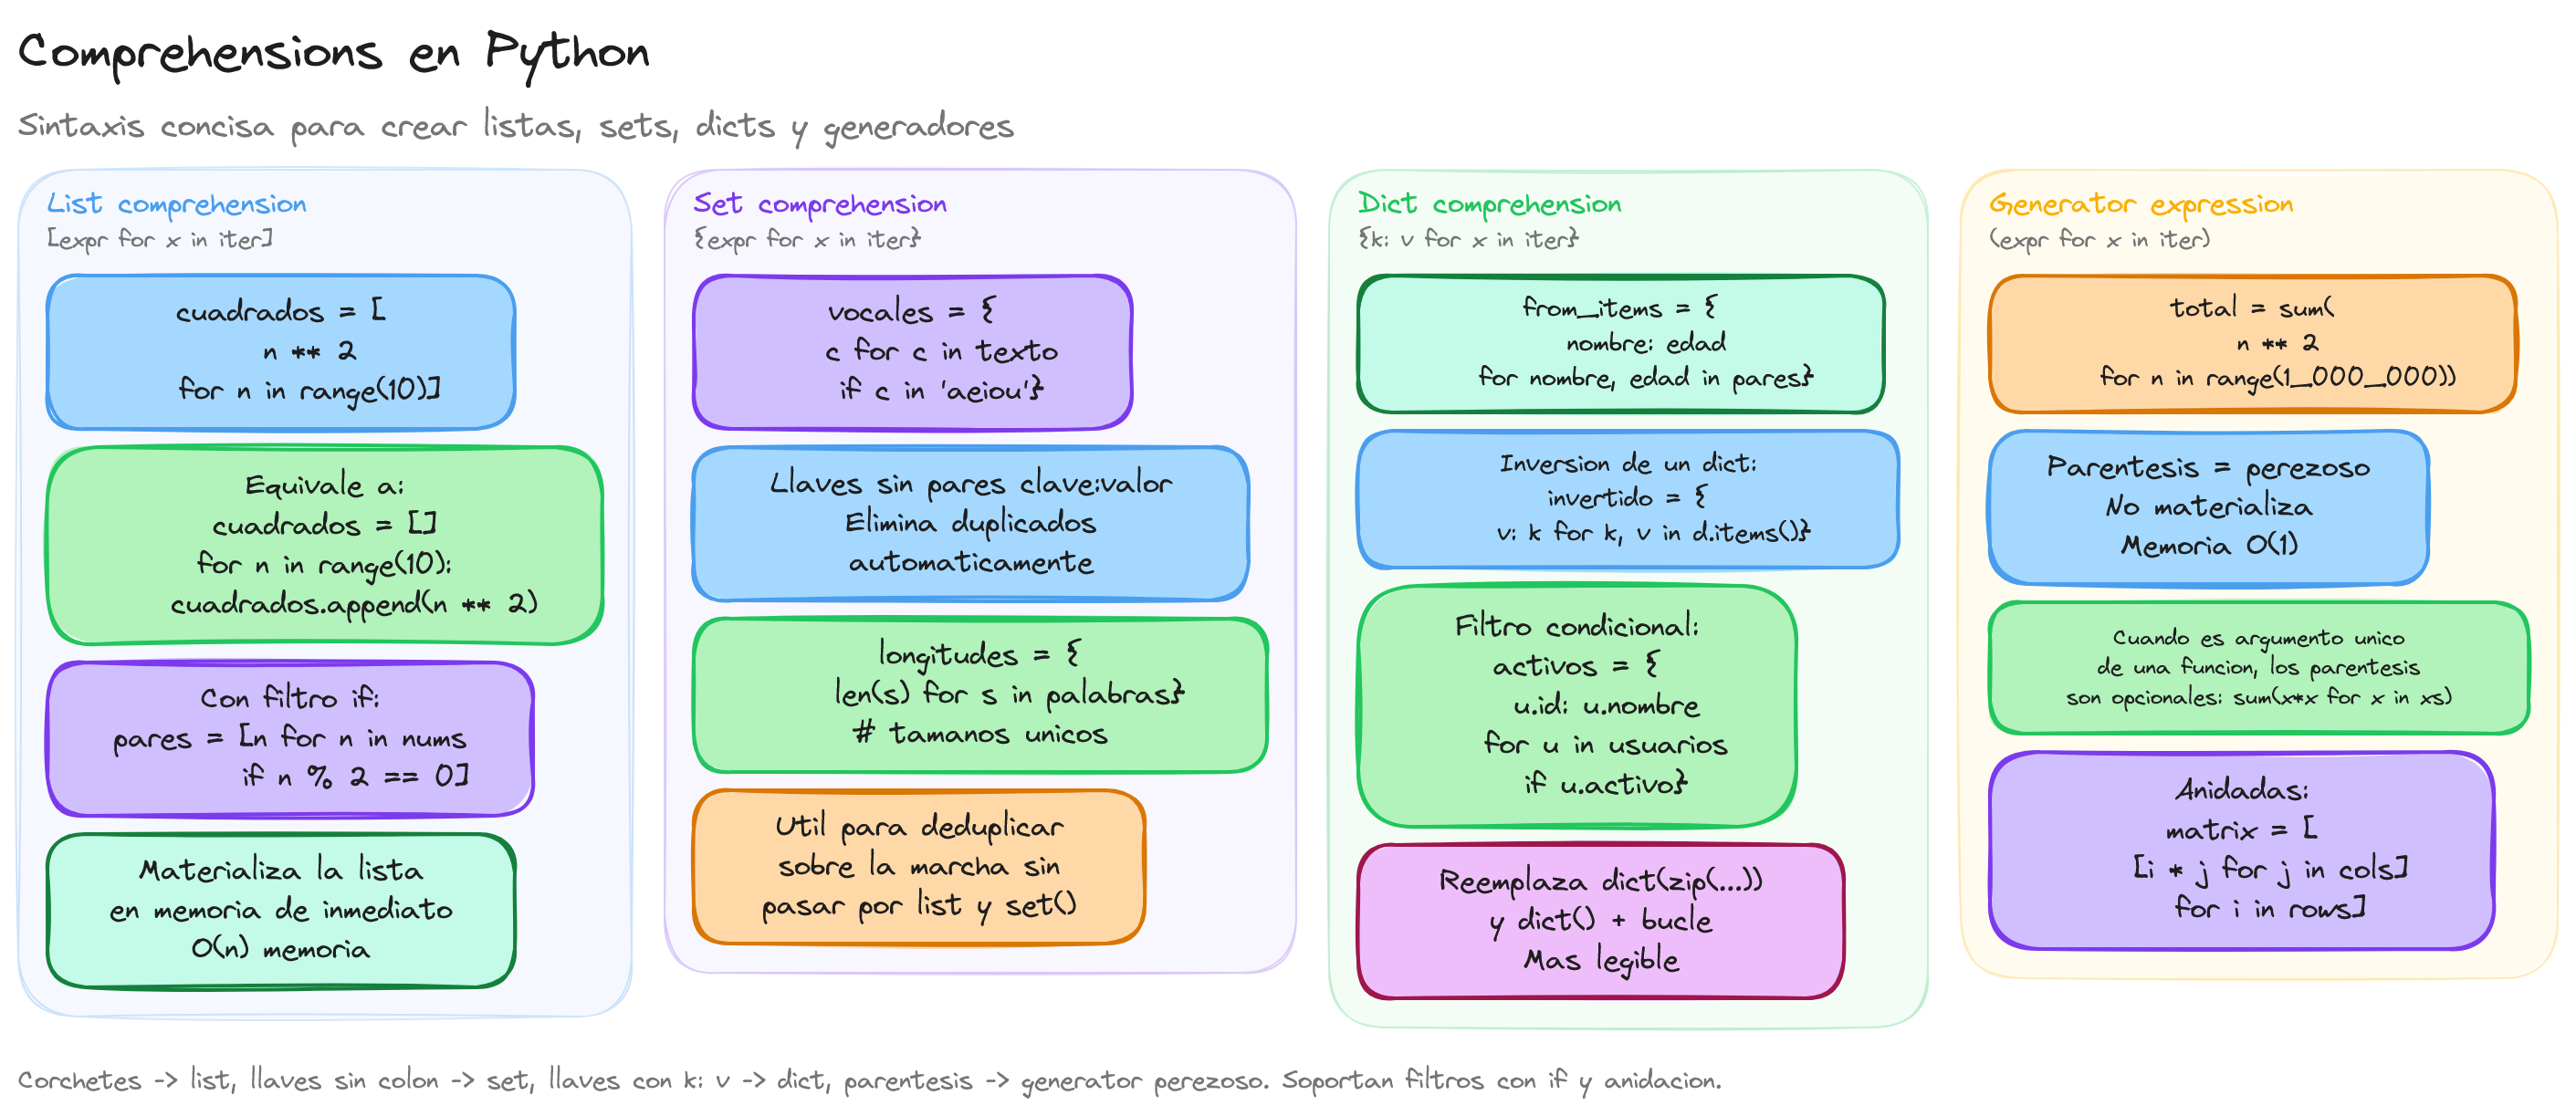 Comprehensions en Python
Sintaxis concisa para crear listas, sets, dicts y generadores
List comprehension
[expr for x in iter]
cuadrados = [
n ** 2
for n in range(10)]
Equivale a:
cuadrados = []
for n in range(10):
cuadrados.append(n ** 2)
Con filtro if:
pares = [n for n in nums
if n % 2 == 0]
Materializa la lista
en memoria de inmediato
O(n) memoria
Set comprehension
{expr for x in iter}
vocales = {
c for c in texto
if c in 'aeiou'}
Llaves sin pares clave:valor
Elimina duplicados
automaticamente
longitudes = {
len(s) for s in palabras}
# tamanos unicos
Util para deduplicar
sobre la marcha sin
pasar por list y set()
Dict comprehension
{k: v for x in iter}
from_items = {
nombre: edad
for nombre, edad in pares}
Inversion de un dict:
invertido = {
v: k for k, v in d.items()}
Filtro condicional:
activos = {
u.id: u.nombre
for u in usuarios
if u.activo}
Reemplaza dict(zip(...))
y dict() + bucle
Mas legible
Generator expression
(expr for x in iter)
total = sum(
n ** 2
for n in range(1_000_000))
Parentesis = perezoso
No materializa
Memoria O(1)
Cuando es argumento unico
de una funcion, los parentesis
son opcionales: sum(x*x for x in xs)
Anidadas:
matrix = [
[i * j for j in cols]
for i in rows]
Corchetes -> list, llaves sin colon -> set, llaves con k: v -> dict, parentesis -> generator perezoso. Soportan filtros con if y anidacion.